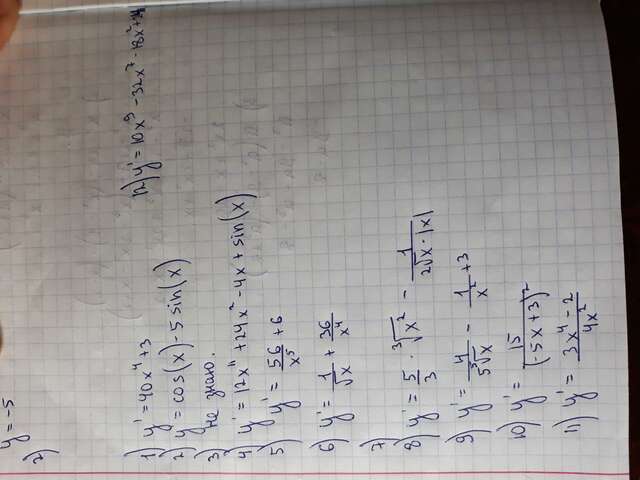 y = -5
2)
1) y' = 40x⁴ + 3
2) y' = cos(x) - 5 sin(x)
3) не знаю.
4) y' = 12x¹¹ + 24x² - 4x + sin(x)
5) y' = 56/x⁵ + 6
6) y' = 1/√x + 36/x⁴
7)
8) y' = 5/3 · ³√x² - 1/(2√x · |x|)
9) y' = 4/(5 ⁵√x) - 1/x² + 3
10) y' = 15/(-5x + 3)²
11) y' = (3x⁴ - 2)/4x²
12) y' = 10x⁹ - 32x⁷ - 18x²